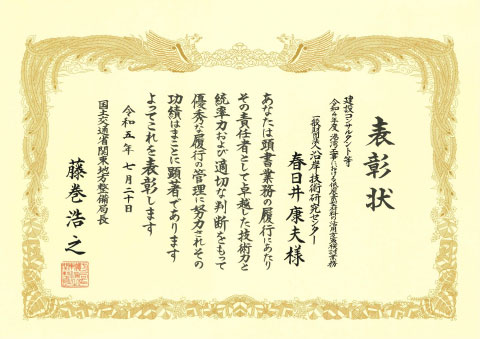 表彰状
建設コンサルタント等
令和4年度 港湾工事における低炭素型材料の活用方策検討業務
一般財団法人沿岸技術研究センター
春日井康夫様
あなたは頭書業務の履行にあたり
その責任者として卓越した技術力と
統率力および適切な判断をもって
優秀な履行の管理に努力されその
功績はまことに顕著であります
よってこれを表彰します
令和五年七月二十日
国土交通省関東地方整備局長
藤巻浩之